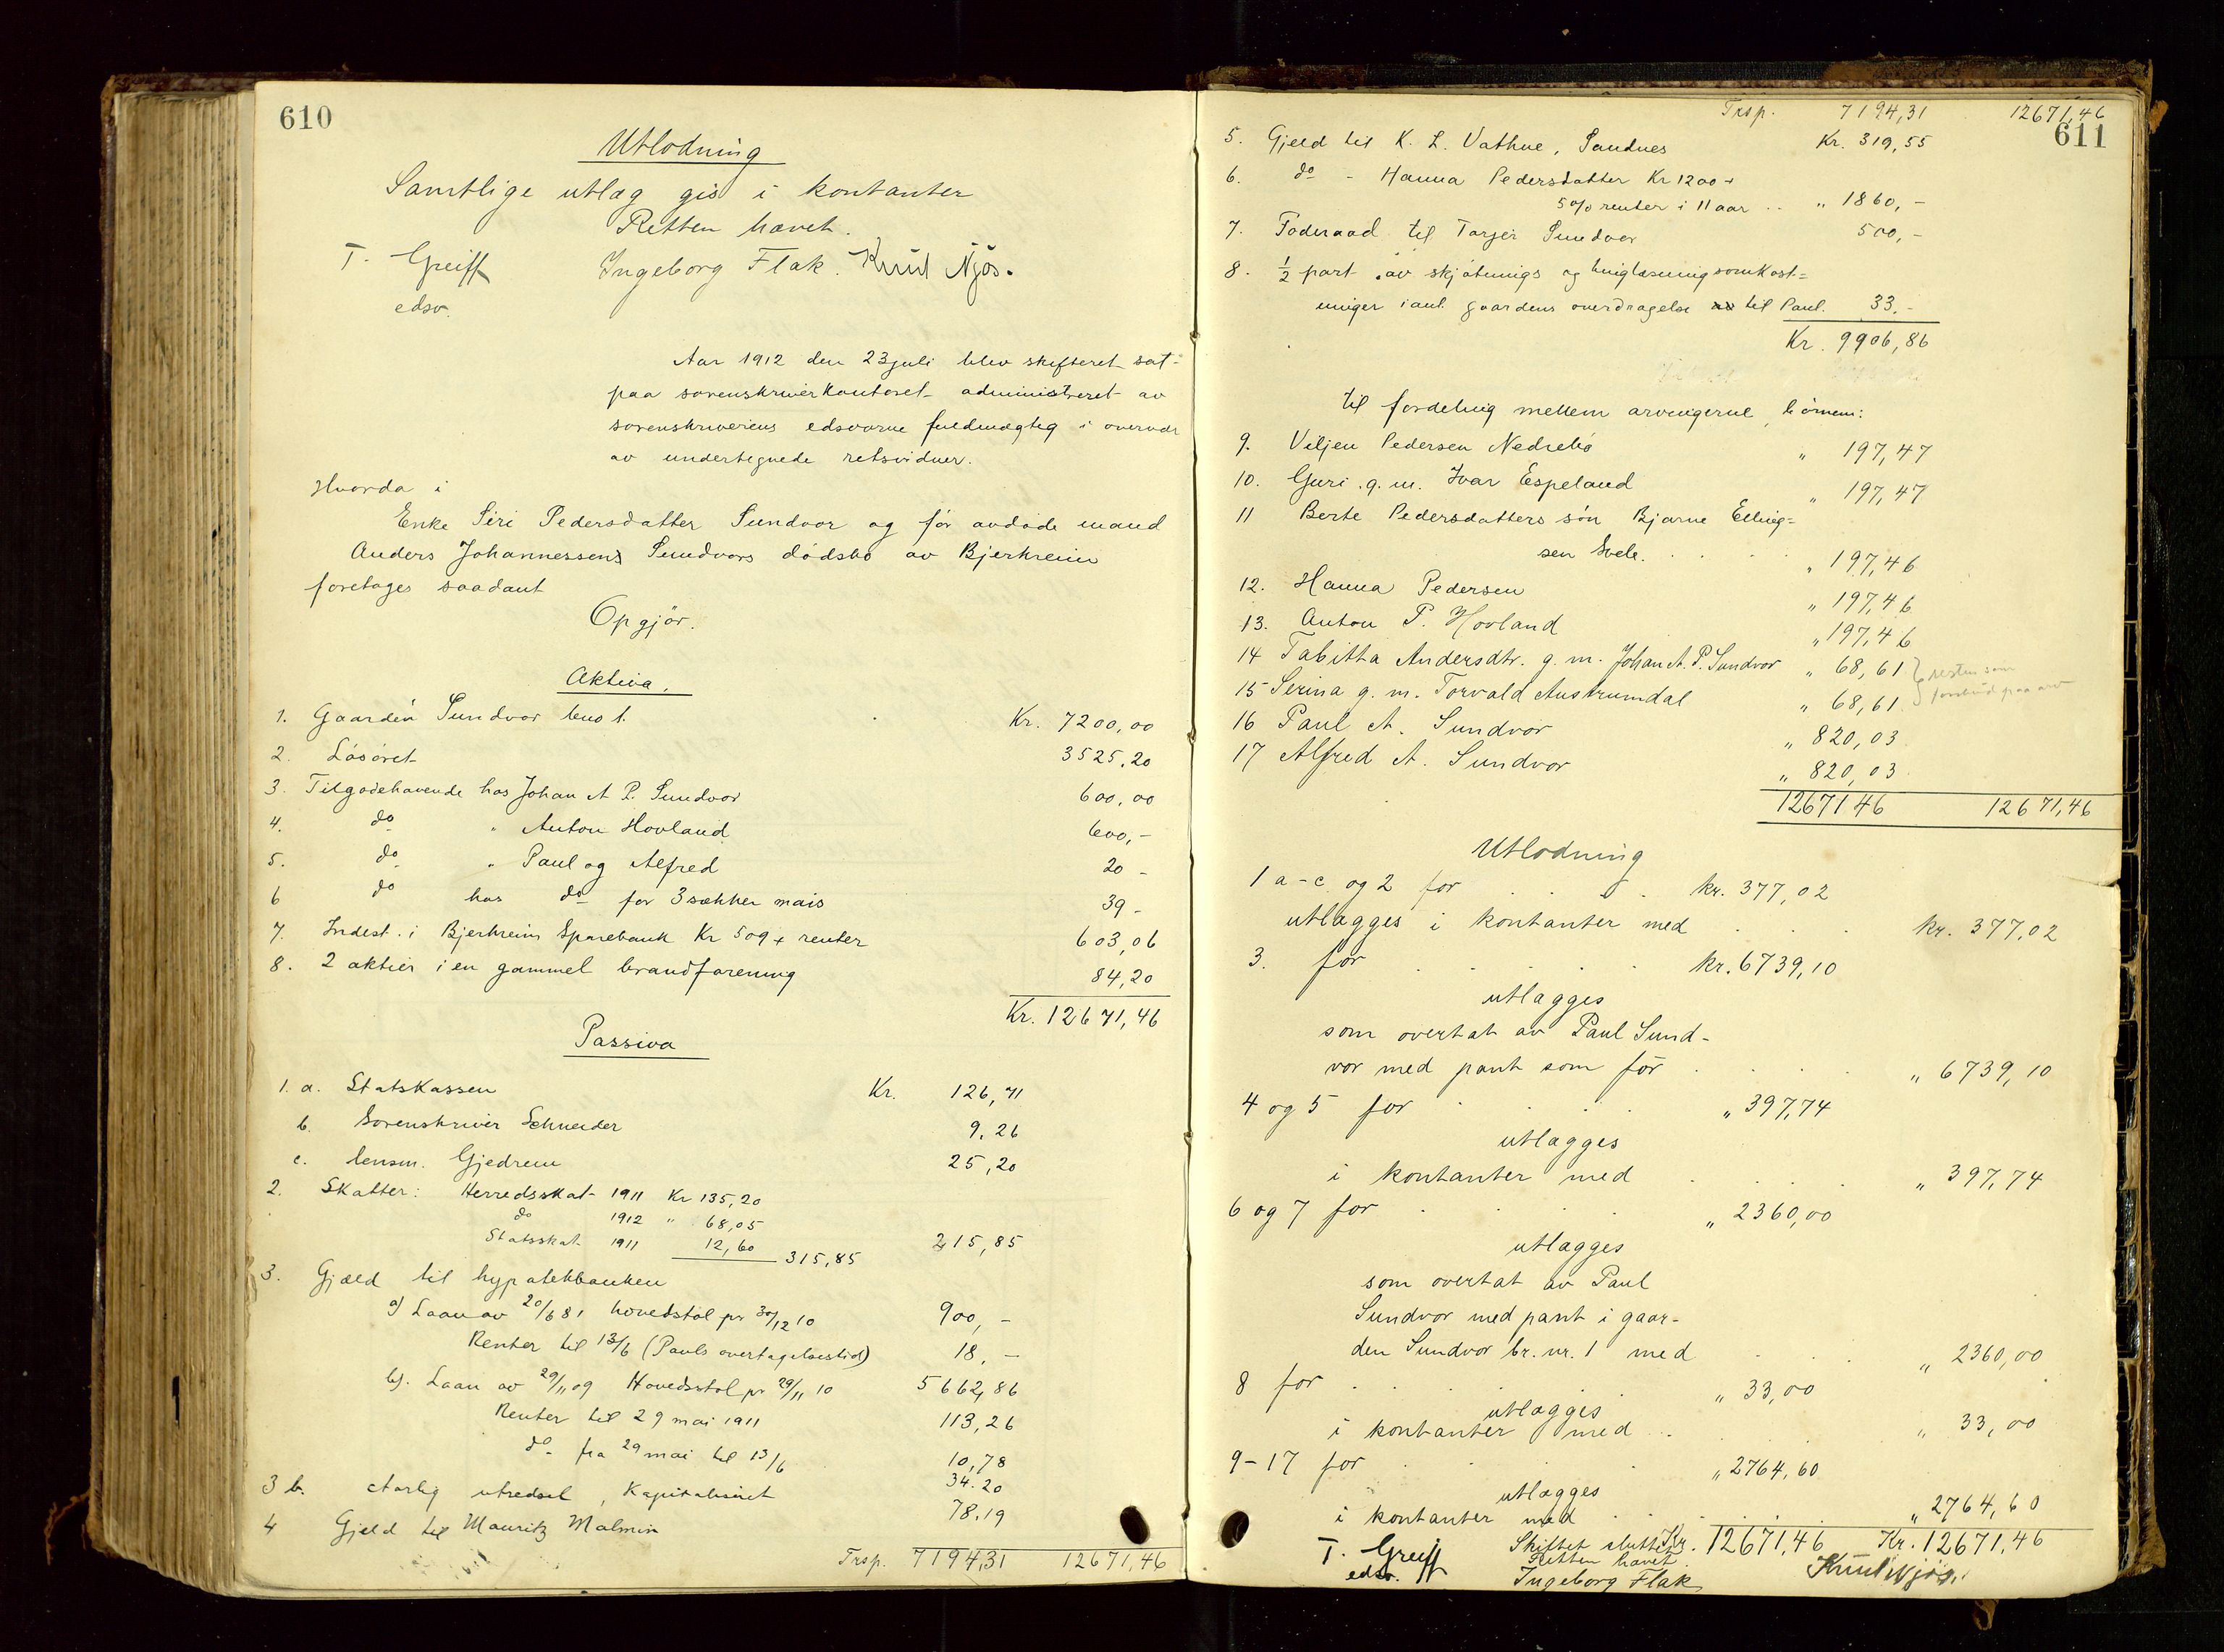 610
Utlodning
Samtlige utlæg gis i kontanter
Retten hævet.
T. Greiff Ingeborg Flak. Knut Njøs.
edsv.
Aar 1912 den 23 juli blev skifteret sat
paa sorenskriverkontoret administreret av
sorenskriverens edsvorne fuldmægtig i overvær
av undertegnede retsvidner.
Hvorda i
Enke Siri Pedersdatter Sundvor og før avdøde mand
Anders Johannessens Sundvors dødsbo av Bjerkreim
foretages saadant
Opgjør.
Aktiva.
1. Gaarden Sundvor bno 1. Kr. 7200,00
2. Løsøret 3525,20
3. Tilgodehavende hos Johan A P. Sundvor 600,00
4. do " Anton Hovland 600,-
5. do " Paul og Alfred 20 -
6 do hos do for 3 sækker mais 39 -
7. Indest. i Bjerkreim Sparebank Kr 509 + renter 603,06
8. 2 aktier i en gammel brandforening 84,20
Kr. 12671,46
Passiva
1. a. Statskassen Kr. 126,71
b. Sorenskriver Schneider 9,26
c. lensm. Gjedrem 25,20
2. Skatter: Herredsskat 1911 Kr 135,20
do 1912 " 68,05
Statsskat 1911 12,60 315,85 215,85
3. Gjæld til hypotekbanken
a) Laan av 20/6 81 hovedstol pr 30/12 10 900,-
Renter til 13/6 (Pauls overtagelsestid) 18,-
b). Laan av 29/11 09 Hovedstol pr 29/11 10 5662,86
Renter til 29 mai 1911 113,26
do fra 29 mai til 13/6 10,78
3 b. Aarlig utredsel, kapitaliseret 34.20
4 Gjeld til Mauritz Malmin 78,19
Trsp. 7194,31 12671,46
Trsp. 7194,31 12671,46
611
5. Gjeld til K. L. Vathne, Sandnes Kr. 319,55
6. do - Hanna Pedersdatter Kr 1200 +
5% renter i 11 aar .. " 1860,-
7. Føderaad til Tarjer Sundvor 500,-
8. 1/2 part av skjøtnings og tinglæsningsomkost=
ninger i anl. gaardens overdragelse til Paul. 33.-
Kr. 9906,86
til fordeling mellem arvingerne, børnene:
9. Viljen Pedersen Nedrebø " 197,47
10. Guri. g. m. Ivar Espeland " 197,47
11 Berte Pedersdatters søn Bjarne Elling=
sen Svele. " 197,46
12. Hanna Pedersen " 197,46
13. Anton P. Hovland " 197,46
14 Tabitta Andersdtr. g. m. Johan A. P. Sundvor " 68,61 } resten som
15 Serina g. m. Torvald Austrumdal " 68,61 forskud paa arv
16 Paul A. Sundvor " 820,03
17 Alfred A. Sundvor " 820,03
12671 46 12671,46
Utlodning
1 a-c og 2 for kr. 377,02
utlægges i kontanter med kr. 377,02
3. for kr. 6739,10
utlægges
som overtat av Paul Sund-
vor med pant som før " 6739,10
4 og 5 for " 397,74
utlægges
i kontanter med " 397,74
6 og 7 for " 2360,00
utlægges
som overtat av Paul
Sundvor med pant i gaar-
den Sundvor br. nr. 1 med " 2360,00
8 for " 33,00
utlægges
i kontanter med " 33,00
9-17 for " 2764,60
utlægges
i kontanter med " 2764,60
Skiftet sluttet Kr. 12671,46 Kr. 12671,46
Retten hævet
T. Greiff Ingeborg Flak Knut Njøs.
edsv.